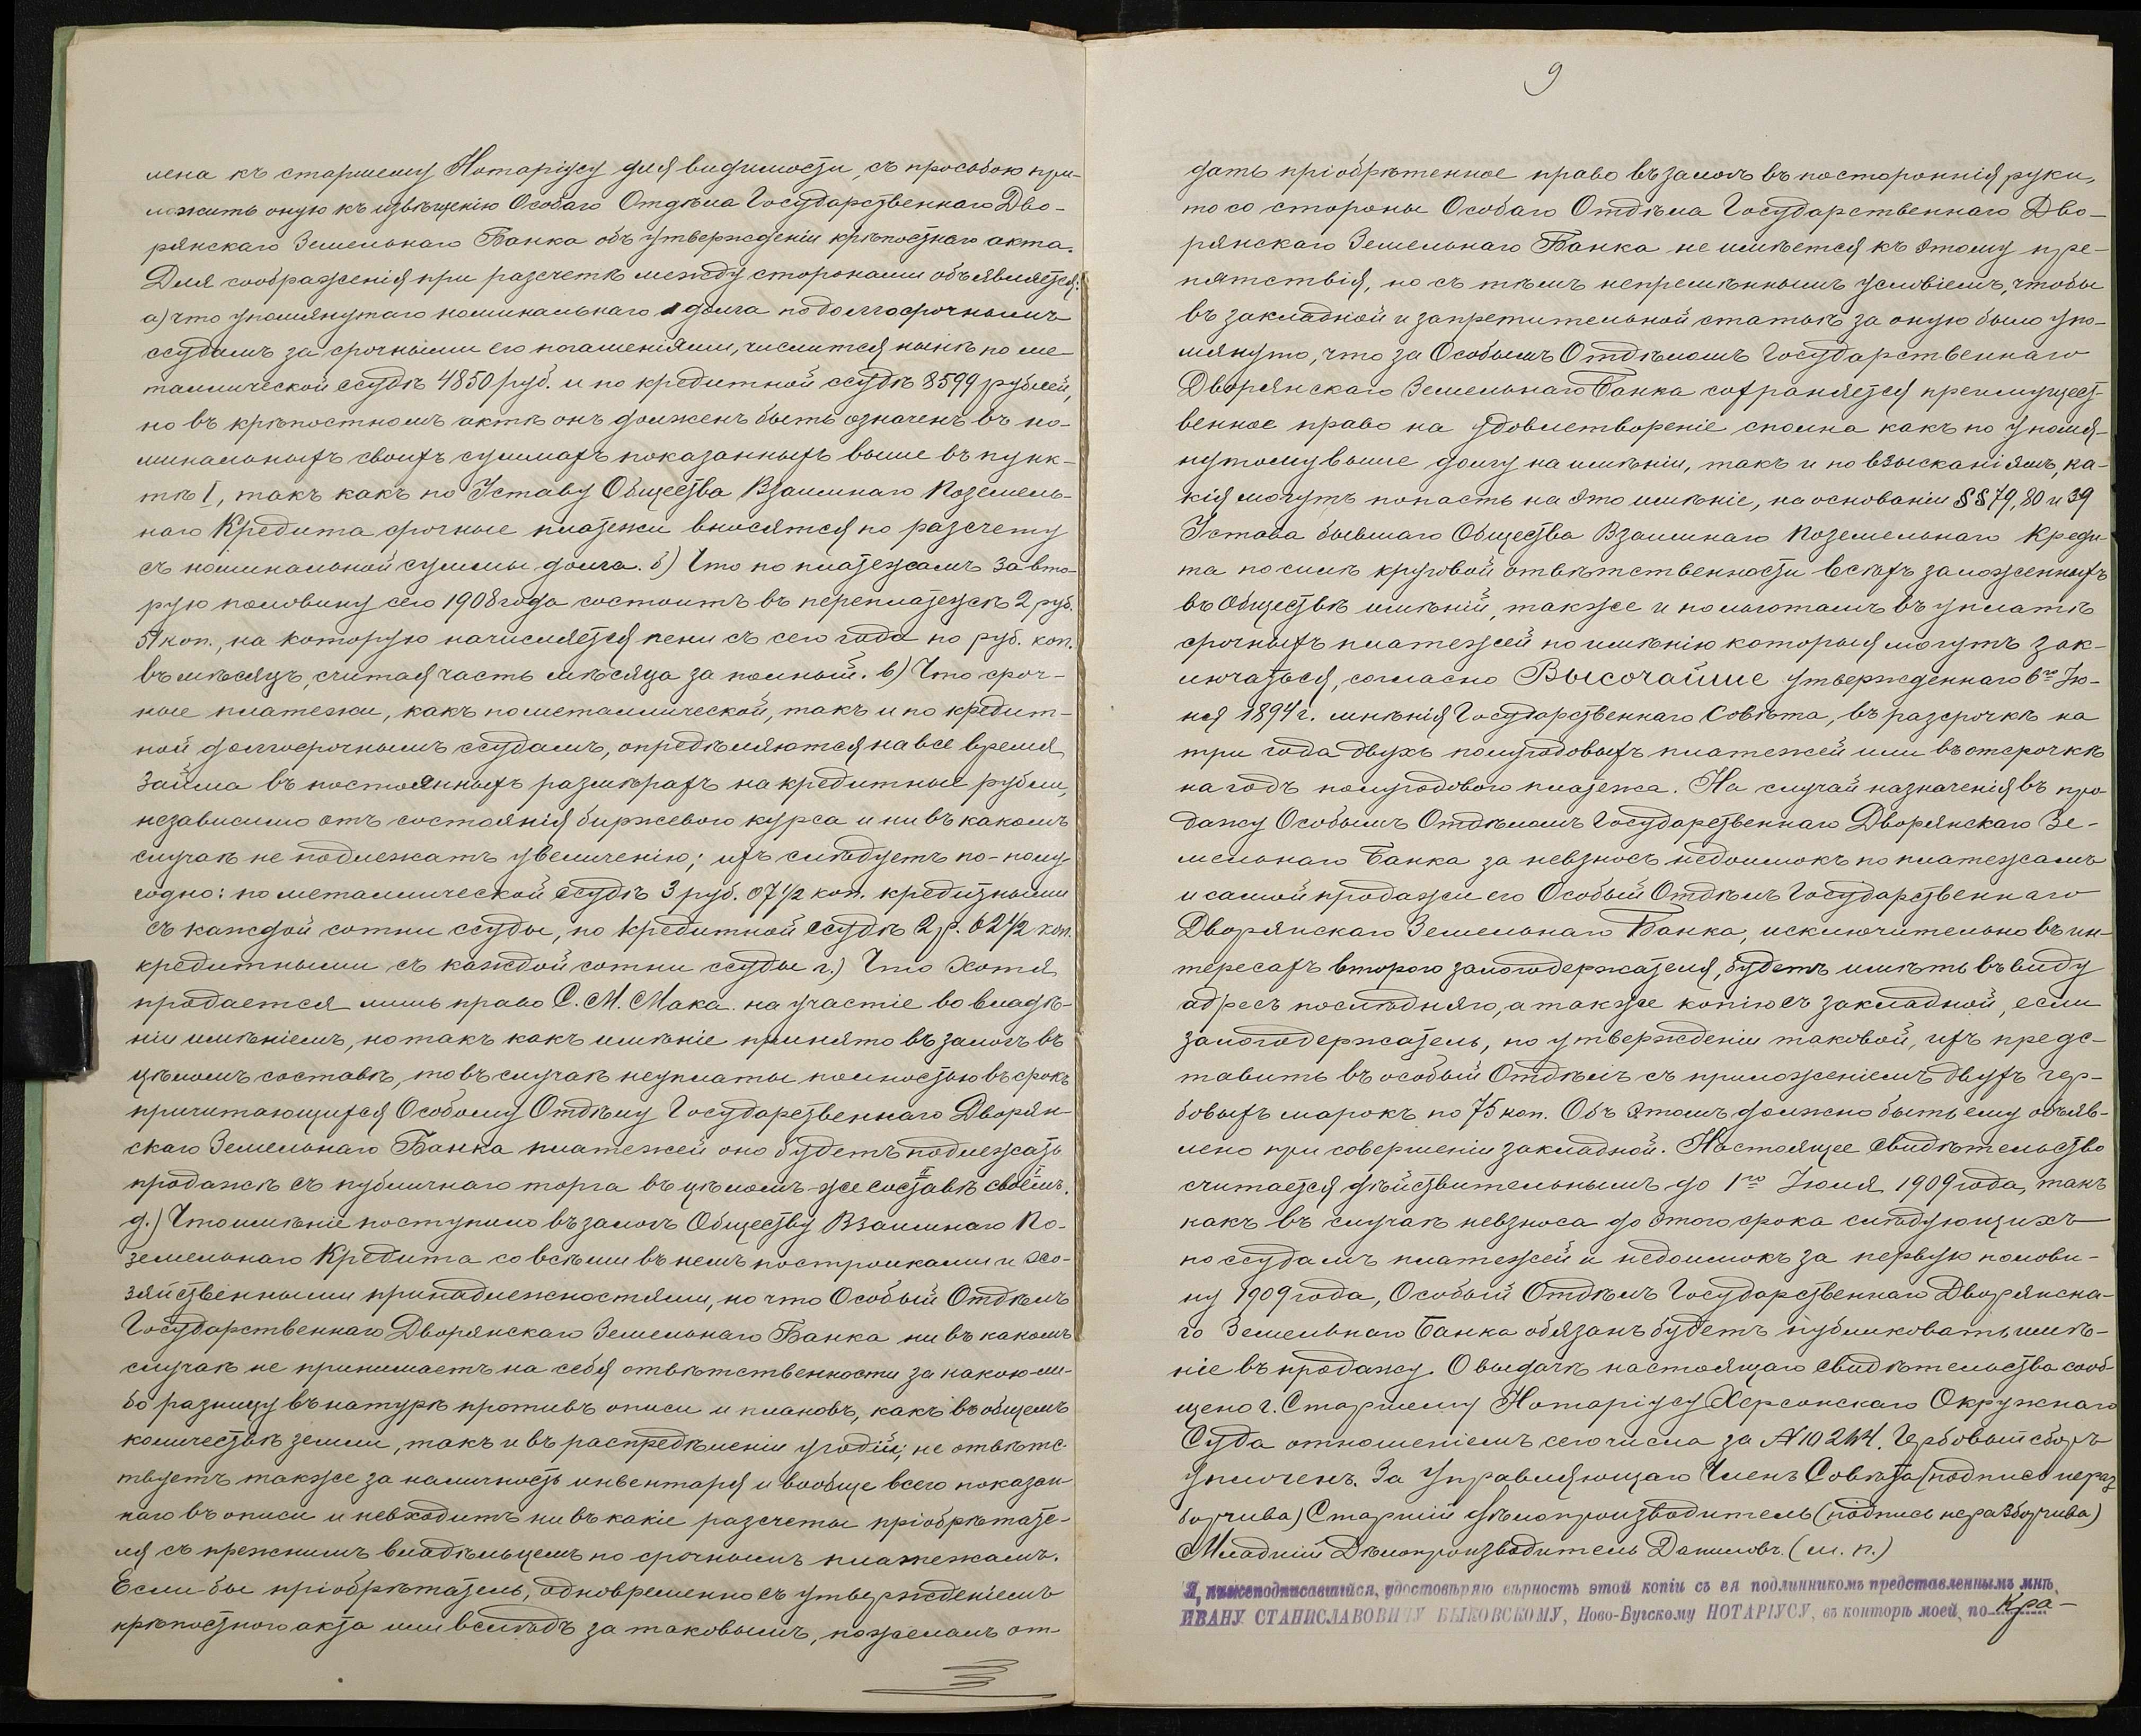 лена къ старшему Нотаріусу для видимости, съ просьбою при-
ложить оную къ извѣщенію Особаго Отдѣла Государственнаго Дво-
рянскаго Земельнаго Банка объ утвержденіи крѣпостного акта.
Для соображенія при разсчетѣ между сторонами объявляется:
а) что упомянутаго номинальнаго долга по долгосрочнымъ
ссудамъ за срочными его погашеніями, числится нынѣ по ме-
таллической ссудѣ 4850 руб. и по кредитной ссудѣ 8599 рублей,
но въ крѣпостномъ актѣ онъ долженъ быть означенъ въ но-
минальныхъ своихъ суммахъ показанныхъ выше въ пунк-
тѣ I, такъ какъ по Уставу Общества Взаимнаго Поземель-
наго Кредита срочные платежи вносятся по разсчету
съ номинальной суммы долга. б) Что по платежамъ за вто-
рую половину сего 1908 года состоитъ въ переплатежѣ 2 руб.
91 коп., на которую начисляется пени съ сего года по руб. коп.
въ мѣсяцъ, считая часть мѣсяца за полный. в) Что сроч-
ные платежи, какъ по металлической, такъ и по кредит-
ной долгосрочнымъ ссудамъ, опредѣляются на все время
займа въ постоянныхъ размѣрахъ на кредитные рубли,
независимо отъ состоянія биржевого курса и ни въ какомъ
случаѣ не подлежатъ увеличенію; ихъ слѣдуетъ по-полу
годно: по металлической ссудѣ 3 руб. 07 1/2 коп. кредитными
съ каждой сотни ссуды, по кредитной ссудѣ 2 р. 62 1/2 коп.
кредитными съ каждой сотни ссуды г.) Что хотя
продается лишь право С. М. Мака. на участіе во владѣ-
ніи имѣніемъ, но такъ какъ имѣніе принято въ залогъ въ
цѣломъ составѣ, то въ случаѣ неуплаты полностью въ срокъ
причитающихся Особому Отдѣлу Государственнаго Дворян-
скаго Земельнаго Банка платежей оно будетъ подлежать
продажѣ съ публичнаго торга въ цѣломъ же составѣ своемъ.
д.) Что имѣніе поступило въ залогъ Обществу Взаимнаго По-
земельнаго Кредита со всѣми въ немъ постройками и хо-
зяйственными принадлежностями, но что Особый Отдѣлъ
Государственнаго Дворянскаго Земельнаго Банка ни въ какомъ
случаѣ не принимаетъ на себя отвѣтственности за какую-ли-
бо разницу въ натурѣ противъ описи и плановъ, какъ въ общемъ
количествѣ земли, такъ и въ распредѣленіи угодій; не отвѣтс-
твуетъ также за наличность инвентаря и вообще всего показан-
наго въ описи и невходитъ ни въ какіе разсчеты пріобрѣтате-
ля съ прежнимъ владѣльцемъ по срочнымъ платежамъ.
Если бы пріобрѣтатель, одновременно съ утвержденіемъ
крѣпостного акта или вслѣдъ за таковымъ, пожелалъ от-
9
дать пріобрѣтенное право въ залогъ въ постороннія руки,
то со стороны Особаго Отдѣла Государственнаго Дво-
рянскаго Земельнаго Банка не имѣется къ этому пре-
пятствія, но съ тѣмъ непремѣннымъ условіемъ, чтобы
въ закладной и запретительной статьѣ за оную было упо-
мянуто, что за Особымъ Отдѣломъ Государственнаго
Дворянскаго Земельнаго Банка сохраняется преимущест-
венное право на удовлетвореніе сполна какъ по упомя-
нутому выше долгу на имѣніи, такъ и по взысканіямъ, ка-
кія могутъ попасть на это имѣніе, на основаніи §§ 79, 80 и 39
Устава бывшаго Общества Взаимнаго Поземельнаго Креди-
та по силѣ круговой отвѣтственности всѣхъ заложенныхъ
въ Обществѣ имѣній, также и по льготамъ въ уплатѣ
срочныхъ платежей по имѣнію которыя могутъ зак-
лючаться, согласно Высочайше утвержденнаго 6го Ію-
ня 1894 г. мнѣнія Государственнаго Совѣта, въ разсрочкѣ на
три года двухъ полугодовыхъ платежей или въ отсрочкѣ
на годъ полугодового платежа. На случай назначенія въ про
дажу Особымъ Отдѣломъ Государственнаго Дворянскаго Зе-
мельнаго Банка за невзносъ недоимокъ по платежамъ
и самой продажи его Особый Отдѣлъ Государственнаго
Дворянскаго Земельнаго Банка, исключительно въ ин-
тересахъ второго залогодержателя, будетъ имѣть въ виду
адресъ послѣдняго, а также копію съ закладной, если
залогодержатель, по утвержденіи таковой, ихъ предс-
тавитъ въ особый Отдѣлъ съ приложеніемъ двухъ гер-
бовыхъ марокъ по 75 коп. Объ этомъ должно быть ему объяв-
лено при совершеніи закладной. Настоящее свидѣтельство
считается дѣйствительнымъ до 1го Іюля 1909 года, такъ
какъ въ случаѣ невзноса до этого срока слѣдующихъ
по ссудамъ платежей и недоимокъ за первую полови-
ну 1909 года, Особый Отдѣлъ Государственнаго Дворянска-
го Земельнаго Банка обязанъ будетъ публиковать имѣ-
ніе въ продажу. О выдачѣ настоящаго свидѣтельства сооб-
щено г. Старшему Нотаріусу Херсонскаго Окружнаго
Суда отношеніемъ сего числа за № 10244. Гербовый сборъ
уплоченъ. За Управляющаго Членъ Совѣта (подпись нераз
борчива) Старшій дѣлопроизводитель (подпись неразборчива)
Младшій Дѣлопроизводитель Даниловъ. (м. п.)
Я, нижеподписавшійся, удостовѣряю вѣрность этой копіи съ ея подлинникомъ представленнымъ мнѣ,
ИВАНУ СТАНИСЛАВОВИЧУ БЫКОВСКОМУ, Ново-Бугскому НОТАРІУСУ, въ конторѣ моей, по Кра-